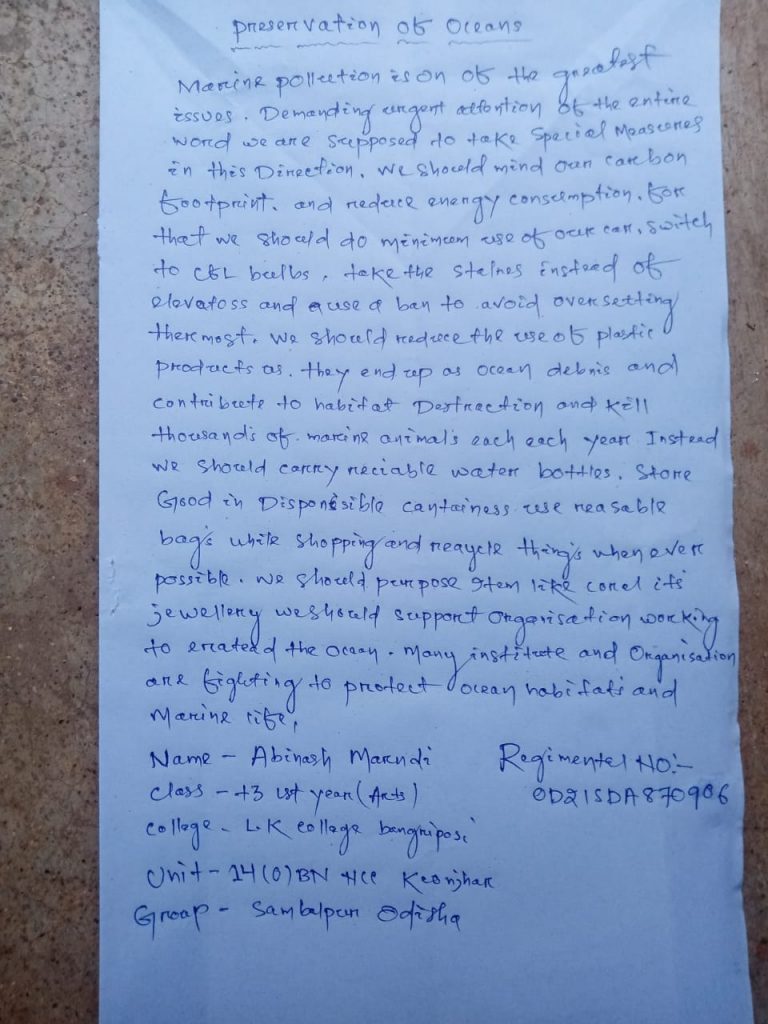 Preservation of Oceans
Marine pollution is on of the greatest
issues. Demanding urgent attention of the entire
word we are supposed to take special Measures
in this Direction. We should mind our carbon
footprint. and reduce energy consumption. for
that we should do minimum use of our car, switch
to CFL bulbs, take the staires instead of
elevatoss and use a ban to avoid over setting
thermost. We should reduce the use of plastic
products as. they end up as ocean debris and
contribute to habitat Destraction and kill
thousand's of marine animal's each each year Instead
we should carry reciable water bottles. Store
Good in Disponisible cantainess use reasable
bag's while shopping and reaycle thing's when ever
possible. We should purpose Item like corel its
jewellery we should support Organisation working
to the Ocean. Many institute and Organisation
are fighting to protect ocean habitats and
Marine life,
Name - Abinash Marndi Regimental NO:-
Class - +3 1st year (Arts) OD21SDA870906
college - L.K college bangriposi
Unit - 14(O) BN NCC Keonjhar
Group - Sambalpur Odisha